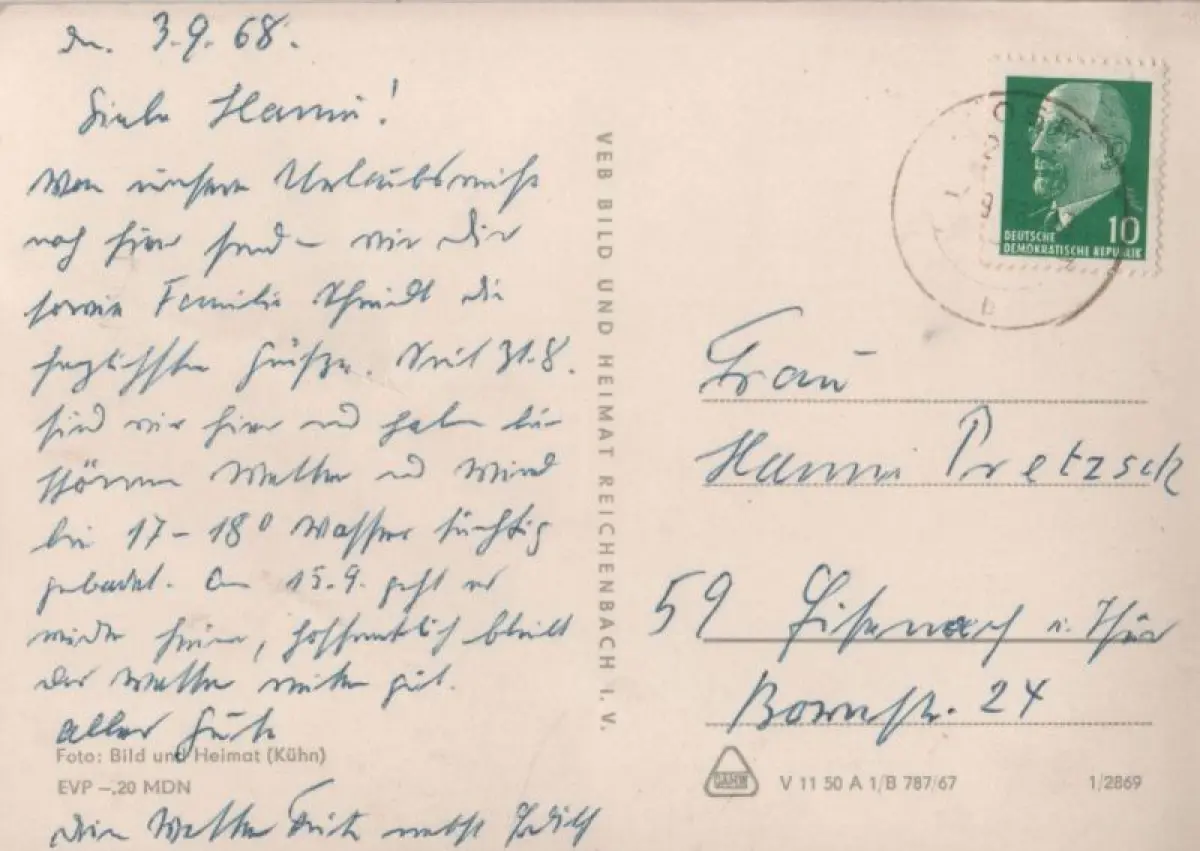 den 3.9.68.
Liebe Hanni!
Von unserem Urlaubs
noch hier send wir Dir
sowie Familie Schmidt die
herzlichsten Grüße. Seit 31.8.
sind wir hier und haben bei
schönem Wetter und Wind
bei 17-18° Wasser tüchtig
gebadet. Am 15.9. geht es
wieder heim, hoffentlich bleibt
das Wetter weiter gut.
Alles Gute
Foto: Bild und Heimat (Kühn)
EVP -,20 MDN
VEB BILD UND HEIMAT REICHENBACH I. V.
10
DEUTSCHE
DEMOKRATISCHE REPUBLIK
Frau
Hanni Pretzsch
59 Eisenach i. Thür
Bornstr. 24
V 11 50 A 1/B 787/67
1/2869